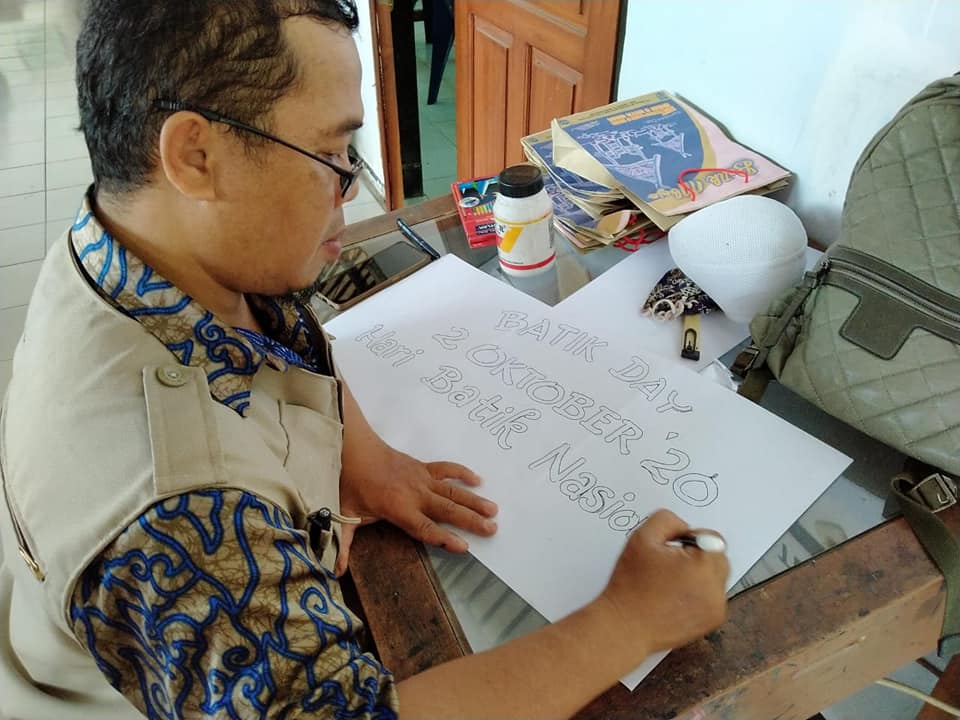 BATIK DAY
2 OKTOBER '20
Hari Batik Nasio